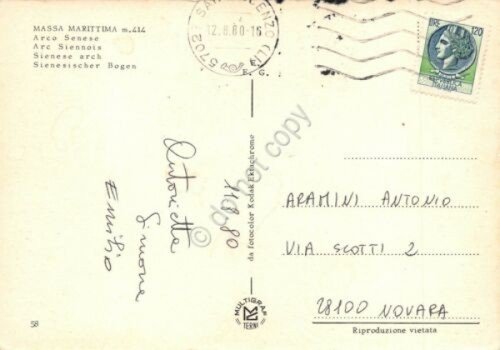 MASSA MARITTIMA m. 414
Arco Senese
Arc Siennois
Sienese arch
Sienesischer Bogen
57027 SAN VINCENZO (LI)
12.8.80-16
E.
E. G.
LIRE 120
Antonietta
Simone
Emilio
da fotocolor Kodak Ektachrome
ARAMINI ANTONIO
VIA SCOTTI 2
28100 NOVARA
MULTIGRAF
TERNI
58
Riproduzione vietata
do not copy